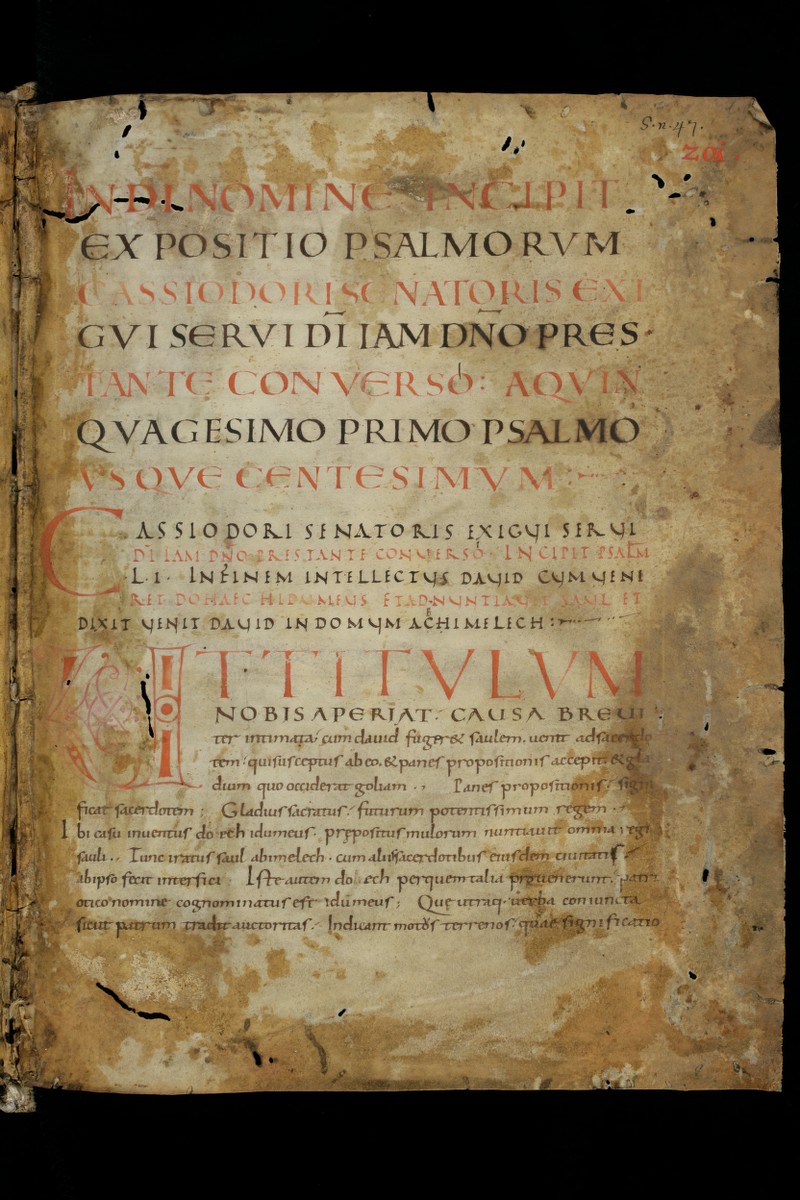 S. n. 47.
201.
IN DI NOMINE INCIPIT
EXPOSITIO PSALMORVM
CASSIODORI SENATORIS EXI
GVI SERVI DI IAM DNO PRES-
TANTE CONVERSO: A QVIN
QVAGESIMO PRIMO PSALMO
VSQVE CENTESIMVM:
CASSIODORI SENATORIS EXIGUI SERUI
DI IAM DNO PRESTANTE CONUERSO. INCIPIT PSALM
L·I· IN FINEM INTELLECTUS DAUID CUM UENI
RET DOHAEC HIDUMEUS ET AD·NUNTIAUIT SAUL ET
DIXIT UENIT DAUID IN DOMUM ACHIMELECH:
ET TITULVM
NOBIS APERIAT. CAUSA BREUI
ter intimata. cum dauid fugeret saulem. uenit ad sacerdo
tem. qui susceptus ab eo. & panes propositionis accepit. & gla
dium quo occiderat goliam. Panes propositionis. signi
ficat sacerdotem; Gladius sacratus. futurum potentissimum regem.
Ibi casu inuentus doech idumeus. prępositus mulorum nuntiauit omnia regi
sauli. Tunc iratus saul abimelech. cum aliis sacerdotibus eiusdem ciuitatis
ab ipso fecit interfici. Iste autem doech per quem talia prouenerunt. patri
otico nomine cognominatus est idumeus; Quę utraq. uerba coniuncta
sicut patrum tradit auctoritas. Indicant motus terrenos. quae significatio